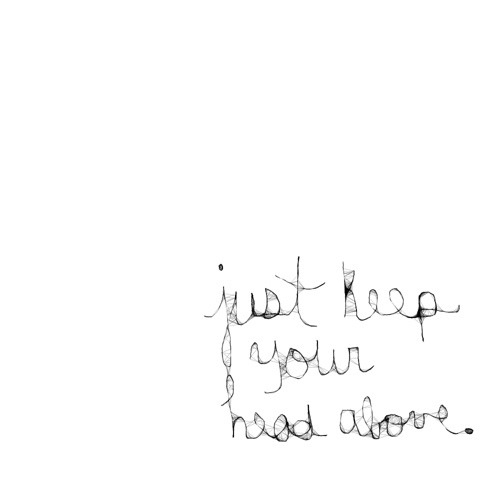 just keep
your
head above.